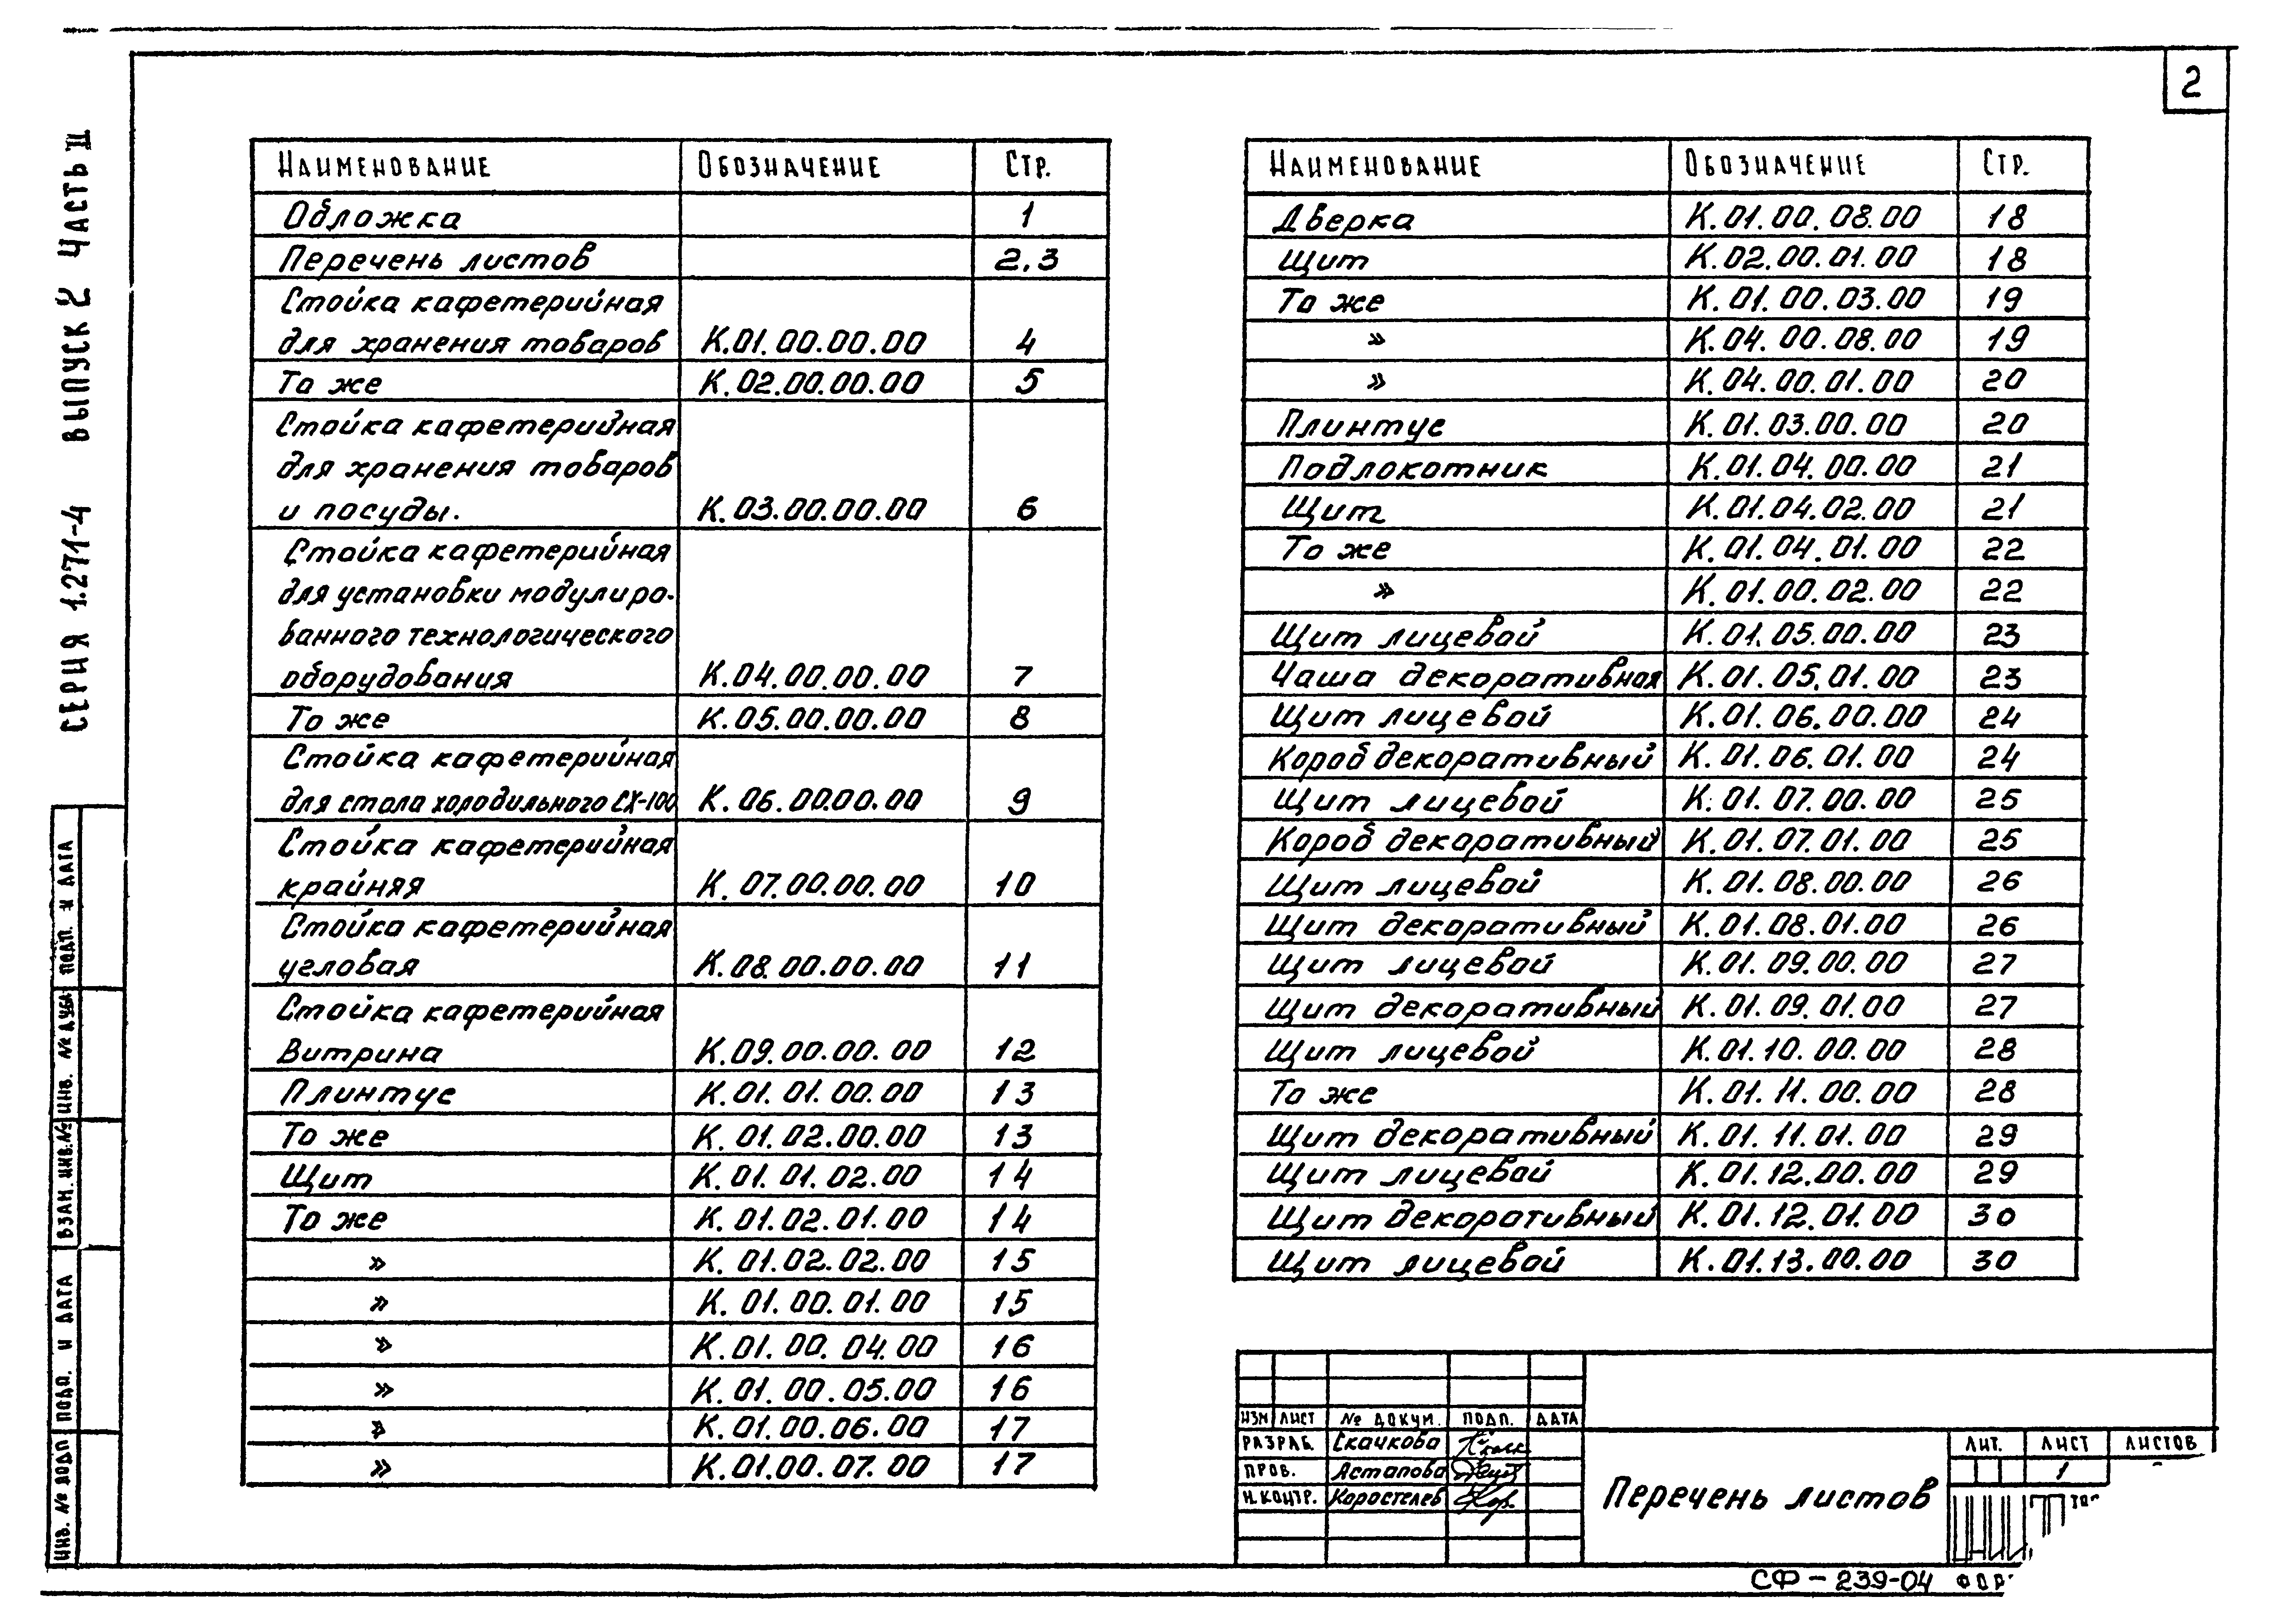 2
СЕРИЯ 1.271-4 ВЫПУСК 2 ЧАСТЬ II
НАИМЕНОВАНИЕ ОБОЗНАЧЕНИЕ СТР.
Обложка 1
Перечень листов 2,3
Стойка кафетерийная
для хранения товаров К.01.00.00.00 4
То же К.02.00.00.00 5
Стойка кафетерийная
для хранения товаров
и посуды. К.03.00.00.00 6
Стойка кафетерийная
для установки модулиро-
ванного технологического
оборудования К.04.00.00.00 7
То же К.05.00.00.00 8
Стойка кафетерийная
для стола холодильного СХ-100 К.06.00.00.00 9
Стойка кафетерийная
крайняя К.07.00.00.00 10
Стойка кафетерийная
угловая К.08.00.00.00 11
Стойка кафетерийная
Витрина К.09.00.00.00 12
Плинтус К.01.01.00.00 13
То же К.01.02.00.00 13
Щит К.01.01.02.00 14
То же К.01.02.01.00 14
» К.01.02.02.00 15
» К.01.00.01.00 15
» К.01.00.04.00 16
» К.01.00.05.00 16
» К.01.00.06.00 17
» К.01.00.07.00 17
НАИМЕНОВАНИЕ ОБОЗНАЧЕНИЕ СТР.
Дверка К.01.00.08.00 18
Щит К.02.00.01.00 18
То же К.01.00.03.00 19
» К.04.00.08.00 19
» К.04.00.01.00 20
Плинтус К.01.03.00.00 20
Подлокотник К.01.04.00.00 21
Щит К.01.04.02.00 21
То же К.01.04.01.00 22
» К.01.00.02.00 22
Щит лицевой К.01.05.00.00 23
Чаша декоративная К.01.05.01.00 23
Щит лицевой К.01.06.00.00 24
Короб декоративный К.01.06.01.00 24
Щит лицевой К.01.07.00.00 25
Короб декоративный К.01.07.01.00 25
Щит лицевой К.01.08.00.00 26
Щит декоративный К.01.08.01.00 26
Щит лицевой К.01.09.00.00 27
Щит декоративный К.01.09.01.00 27
Щит лицевой К.01.10.00.00 28
То же К.01.11.00.00 28
Щит декоративный К.01.11.01.00 29
Щит лицевой К.01.12.00.00 29
Щит декоративный К.01.12.01.00 30
Щит лицевой К.01.13.00.00 30
ИЗМ ЛИСТ № ДОКУМ. ПОДП. ДАТА
РАЗРАБ. Скачкова
ПРОВ. Астапова
Н.КОНТР. Коростелев
Перечень листов
ЛИТ. ЛИСТ ЛИСТОВ
1
СФ-239-04 ФОР
ИНВ. № ПОДП ПОДП. И ДАТА ВЗАМ. ИНВ.№ ИНВ. № ДУБЛ ПОДП. И ДАТА